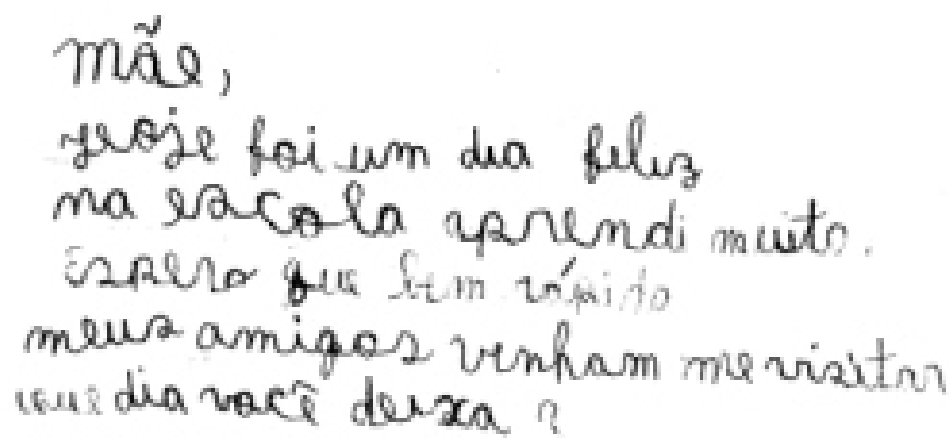 mãe,
Hoje foi um dia feliz
na escola aprendi muito.
Espero que bem rápido
meus amigos venham me visitar
que dia você deixa?